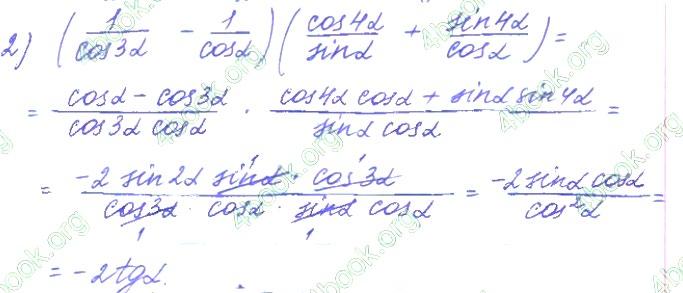 2) (1/cos3α - 1/cosα)(cos4α/sinα + sin4α/cosα) =
= (cosα - cos3α)/(cos3α cosα) · (cos4α cosα + sinα sin4α)/(sinα cosα) =
= (-2 sin2α sinα · cos3α)/(cos3α · cosα · sinα cosα) = (-2 sinα cosα)/(cos²α) =
= -2tgα.
4book.org